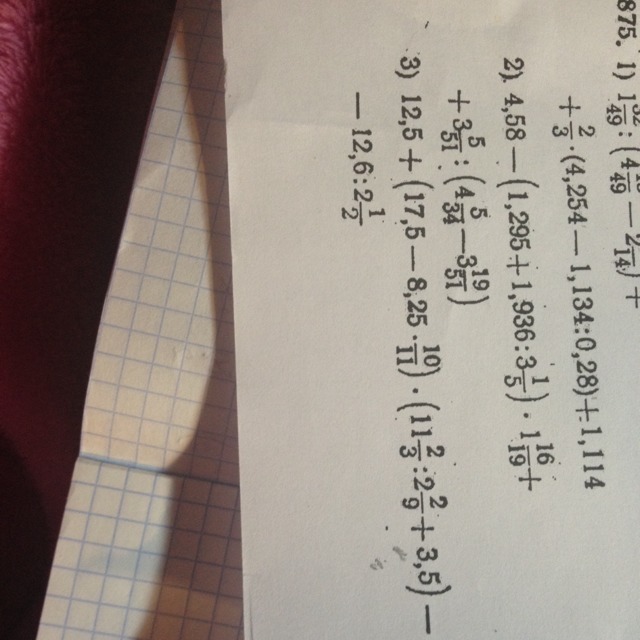 875. 1)
+ 2/3 · (4,254 − 1,134 : 0,28) + 1,114
2) 4,58 − (1,295 + 1,936 : 3 1/5) · 1 16/19 +
+ 3 5/51 : (4 5/34 − 3 19/51)
3) 12,5 + (17,5 − 8,25 · 10/11) · (11 2/3 : 2 2/9 + 3,5) −
− 12,6 : 2 1/2